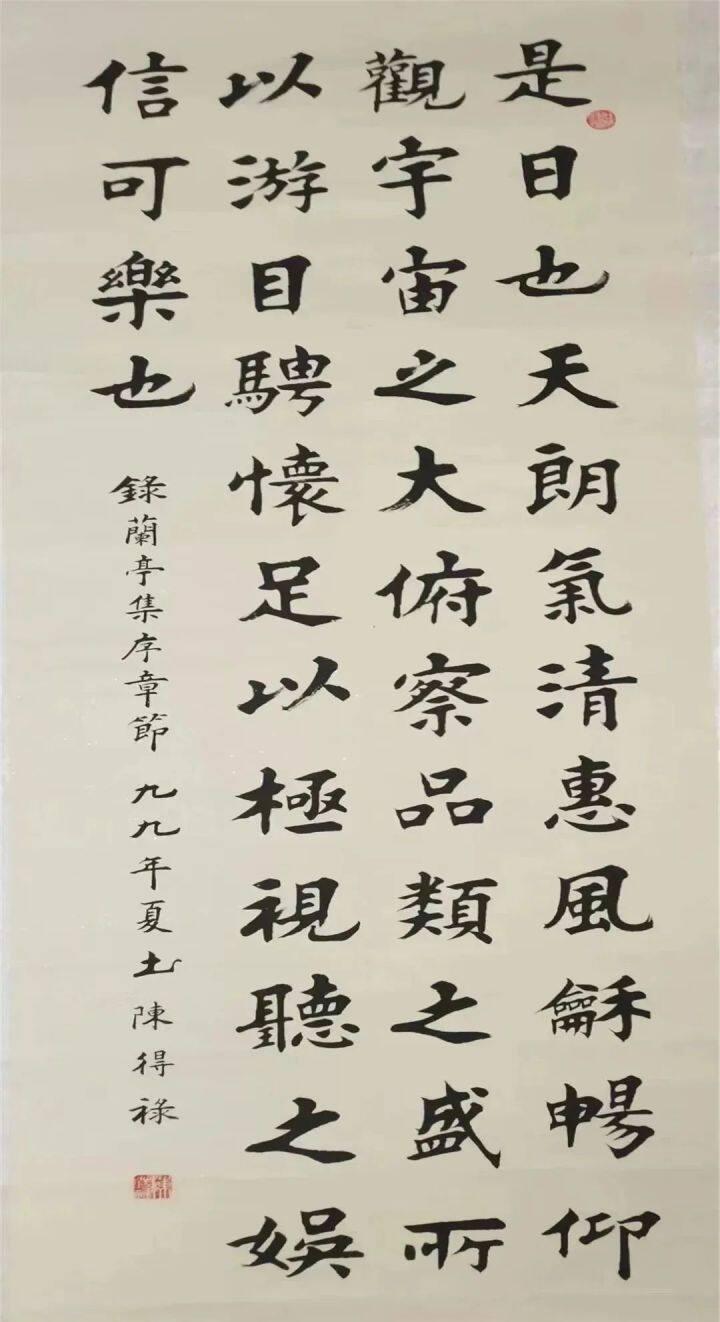 是日也天朗氣清惠風龢暢仰
觀宇宙之大俯察品類之盛所
以游目騁懷足以極視聽之娛
信可樂也
錄蘭亭集序章節 九九年夏 陳得祿